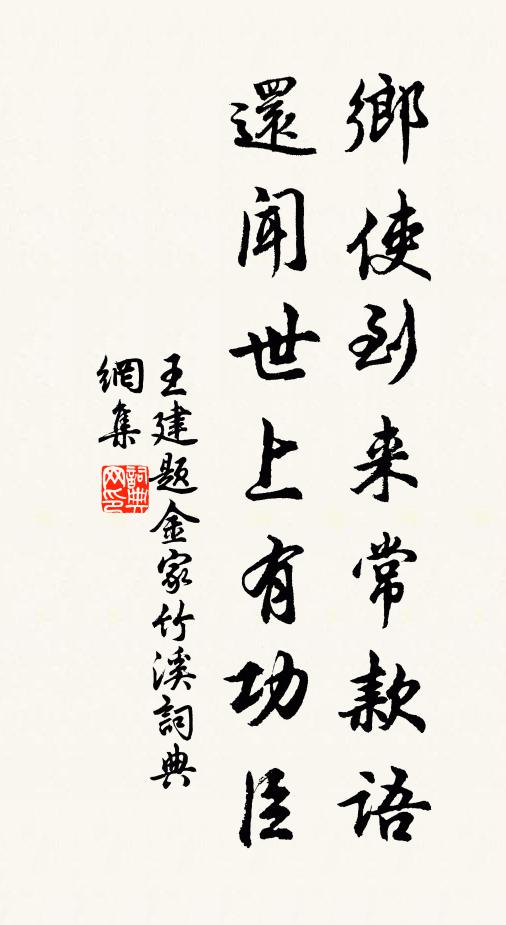 鄉使到来常款語
還聞世上有功臣
王建題金家竹溪詞典
網集
詞典
网印